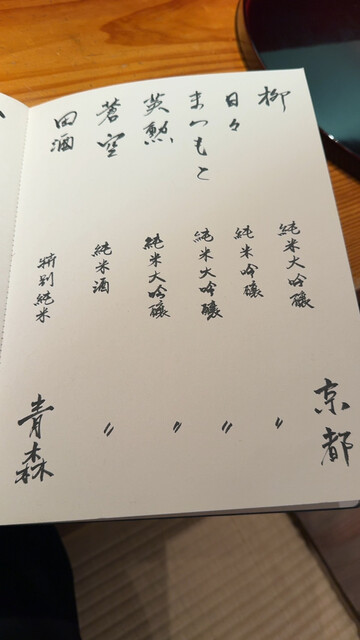 柳 純米大吟醸 京都
日々 純米吟醸 〃
まつもと 純米大吟醸 〃
英勲 純米大吟醸 〃
蒼空 純米酒 〃
田酒 特別純米 青森